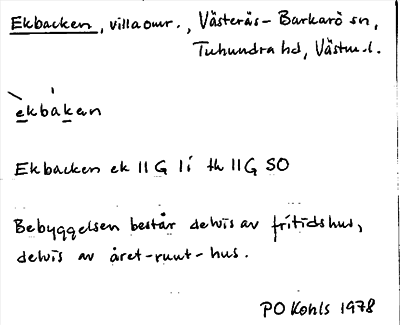 Ekbacken, villaomr., Västerås-Barkarö sn,
Tuhundra hd, Västm.l.
èkbáken
Ekbacken ek 11 G 1i th 11 G SO
Bebyggelsen består delvis av fritidshus,
delvis av året-runt-hus.
PO Kohls 1978